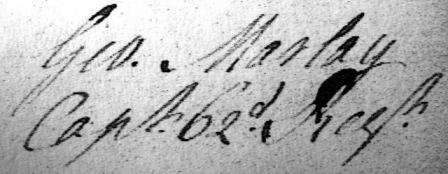 Geo. Marlay
Capt. 62d. Regt.